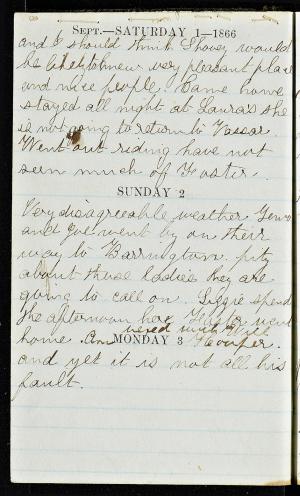 Sept.—SATURDAY 1—1866
and I should think Shovey would
be likely to know very pleasant place
and nice people. Came home
stayed all night at Laura's she
is not going to return to Vassar.
Went out riding have not
seen much of Foster.
SUNDAY 2
Very disagreeable weather
and Joe went by on their
way to Barrington. pity
about those ladies they are
going to call on. Lizzie spend
the afternoon here went
home. Am vexed with Will Hooper.
MONDAY 3
and yet it is not all his
fault.